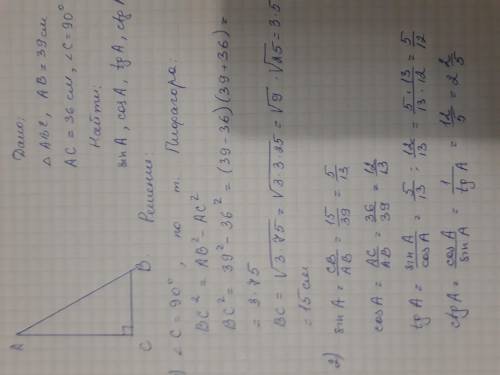 A
B
C
Дано:
△ ABC, AB = 39 см
AC = 36 см, ∠C = 90°
Найти:
sin A, cos A, tg A, ctg A
Решение:
) ∠C = 90°, по т. Пифагора:
BC² = AB² - AC²
BC² = 39² - 36² = (39 - 36)(39 + 36) =
= 3·75
BC = √3·75 = √3·3·25 = √9 · √25 = 3·5
= 15 см
2) sin A = CB/AB = 15/39 = 5/13
cos A = AC/AB = 36/39 = 12/13
tg A = sin A/cos A = 5/13 : 12/13 = 5·13/13·12 = 5/12
ctg A = cos A/sin A = 1/tg A = 12/5 = 2 2/5